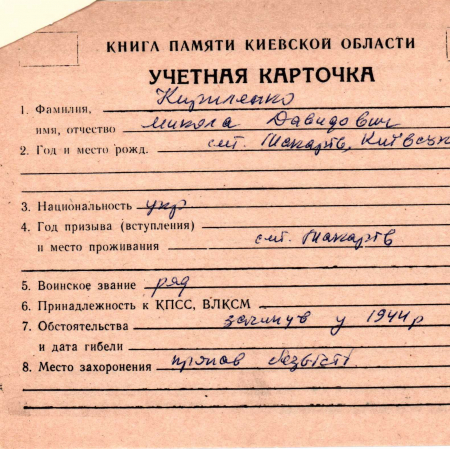 КНИГА ПАМЯТИ КИЕВСКОЙ ОБЛАСТИ
УЧЕТНАЯ КАРТОЧКА
1. Фамилия, Кириленко
имя, отчество Микола Давидович
2. Год и место рожд. смт. Макарів, Київськ
3. Национальность укр
4. Год призыва (вступления)
и место проживания смт. Макарів
5. Воинское звание ряд
6. Принадлежность к КПСС, ВЛКСМ
7. Обстоятельства загинув у 1944р
и дата гибели
8. Место захоронения пропав безвісті